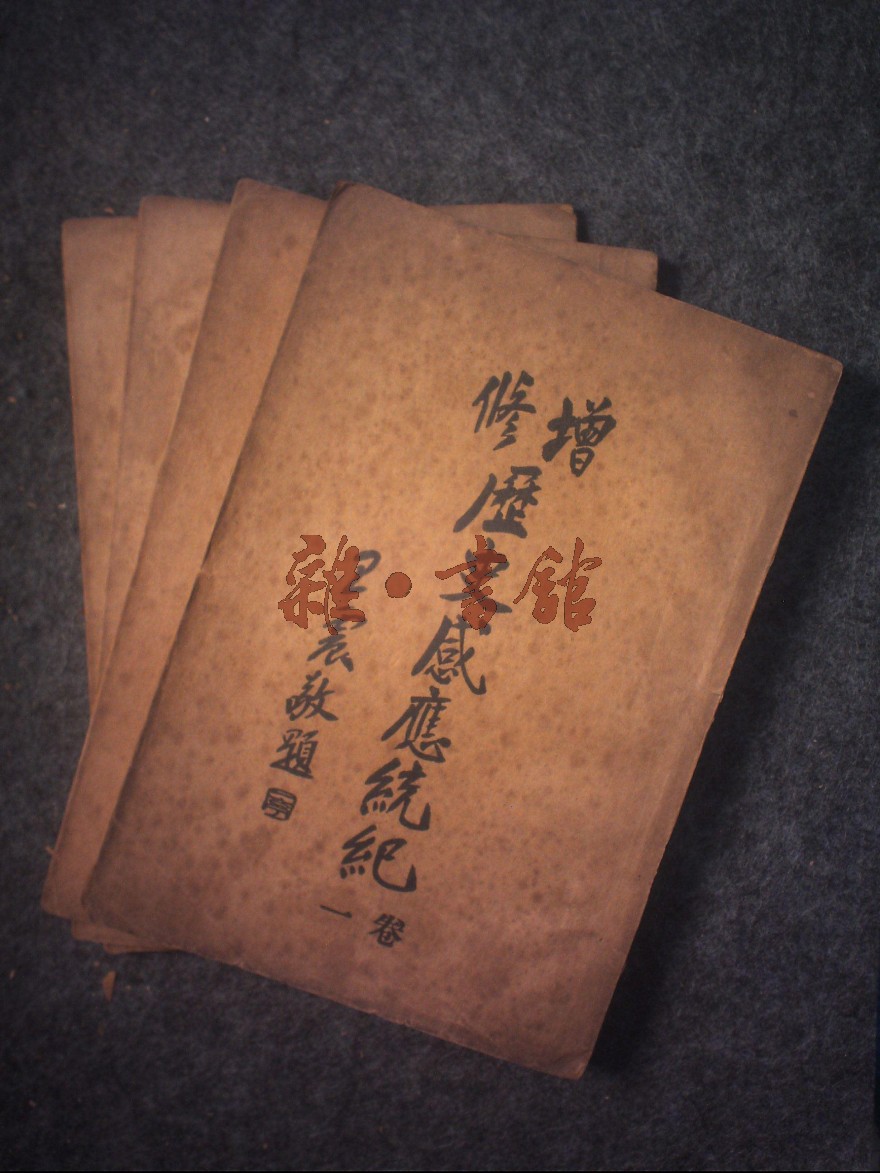 增修歷史感應統紀
卷一
敬題
雜·書館